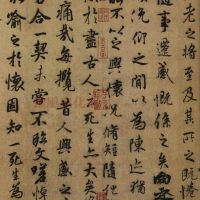 老之將至及其所之既惓
隨事遷感慨係之矣向之
俛仰之間以為陳迹猶
不以之興懷況脩短隨化
於盡古人云死生亦大矣
痛哉每攬昔人興感之
合一契未嘗不臨文嗟悼
喻之於懷固知一死生為